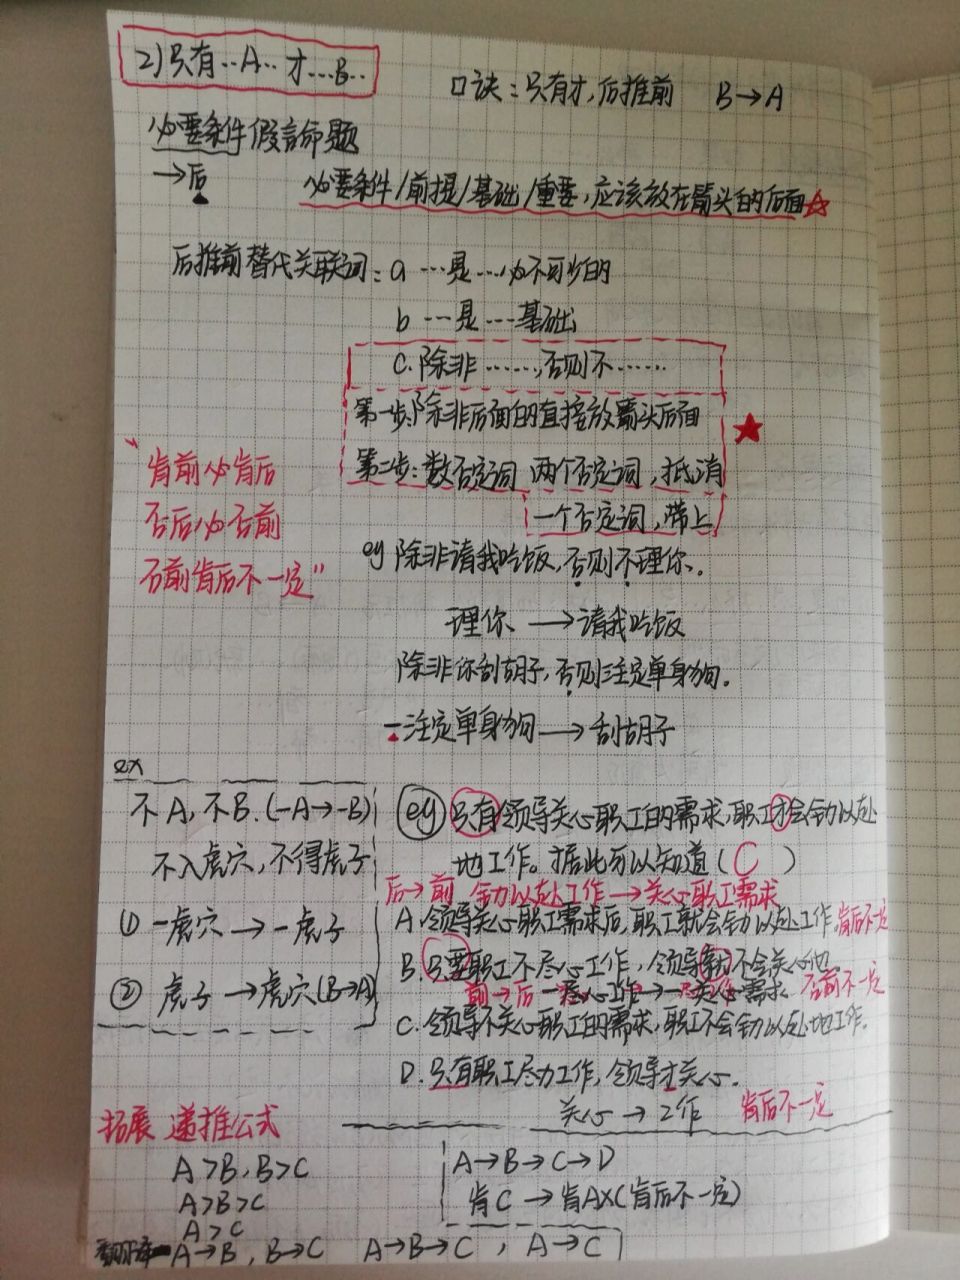 2)只有…A…才…B…
口诀:只有才,后推前 B→A
必要条件假言命题
→后
必要条件/前提/基础/重要,应该放在箭头的后面☆
后推前替代关联词:a …是…必不可少的
b …是…基础
C.除非……,否则不……
第一步:除非后面的直接放箭头后面
★
第二步:数否定词 两个否定词,抵消
一个否定词,带上
“肯前必肯后
否后必否前
否前肯后不一定”
eg 除非请我吃饭,否则不理你。
理你 →请我吃饭
除非你刮胡子,否则注定单身狗。
-注定单身狗→刮胡子
ex
不A,不B.(-A→-B)
不入虎穴,不得虎子
① -虎穴→-虎子
② 虎子→虎穴(B→A)
eg 只有领导关心职工的需求,职工才会全力以赴
地工作。据此可以知道(C)
后→前 全力以赴工作→关心职工需求
A.领导关心职工需求后,职工就会全力以赴工作.肯后不一定
B.只要职工不尽心工作,领导就不会关心他
前→后 -尽心工作→-关心需求 否前不一定
C.领导不关心职工的需求,职工不会全力以赴地工作.
D.只有职工尽力工作,领导才关心.
关心→工作 肯后不一定
拓展 递推公式
A>B,B>C
A>B>C
A>C
翻译 A→B,B→C A→B→C,A→C
A→B→C→D
肯C→肯A×(肯后不一定)